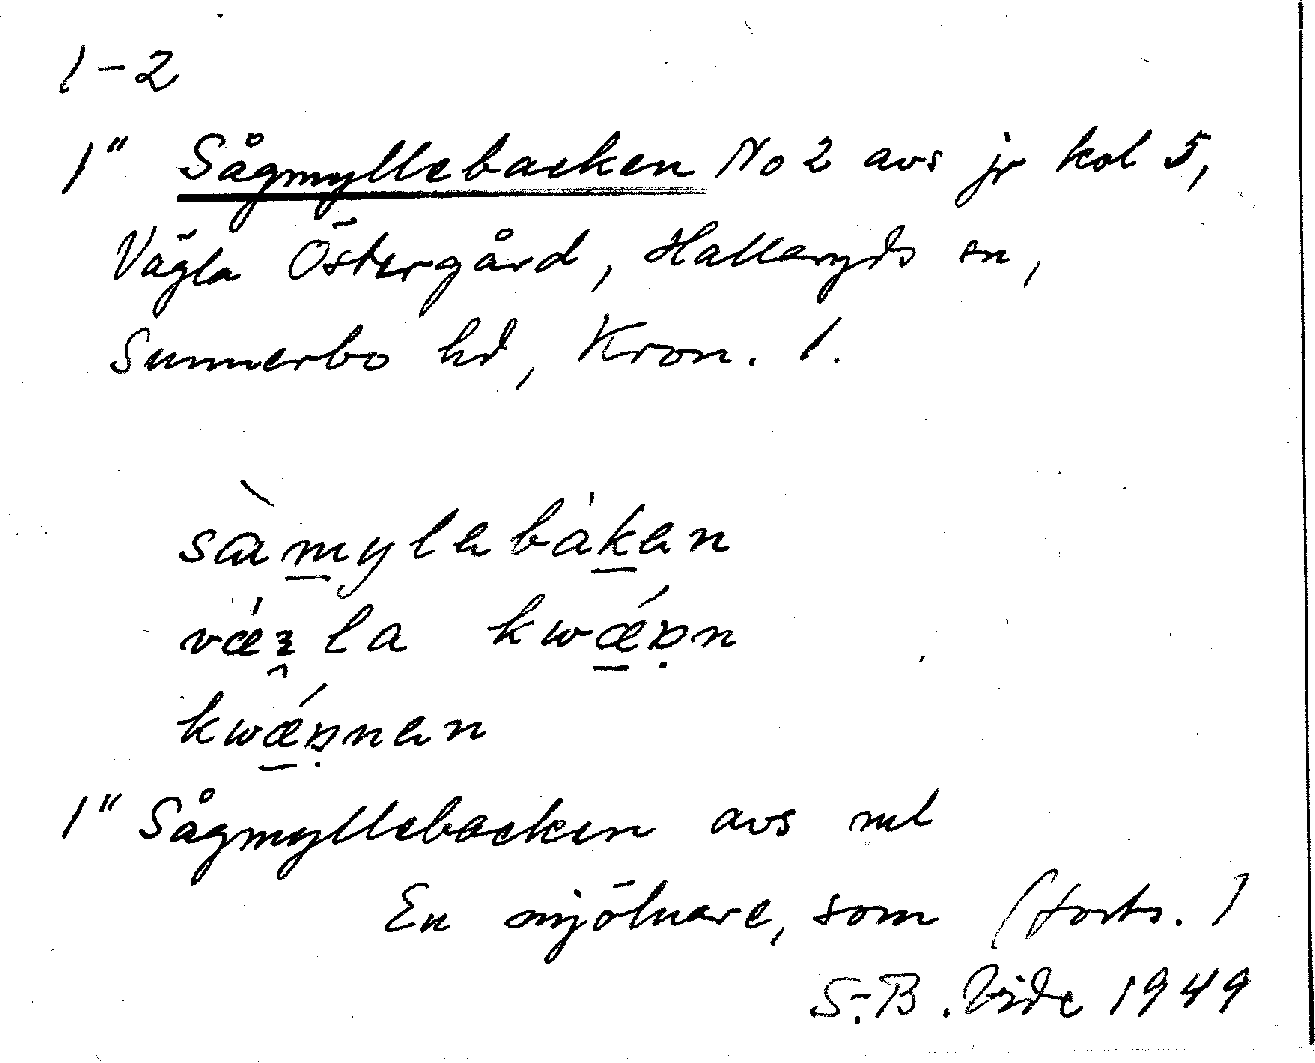 1-2
1" Sågmyllebacken No 2 avs jr kol 5,
Vägla Östergård, Hallaryds sn,
Sunnerbo hd, Kron. l.
sɑ̀mylebàken
la
1" Sågmyllebacken avs nel
En mjölnare, som (forts.)
S.-B. Vide 1949